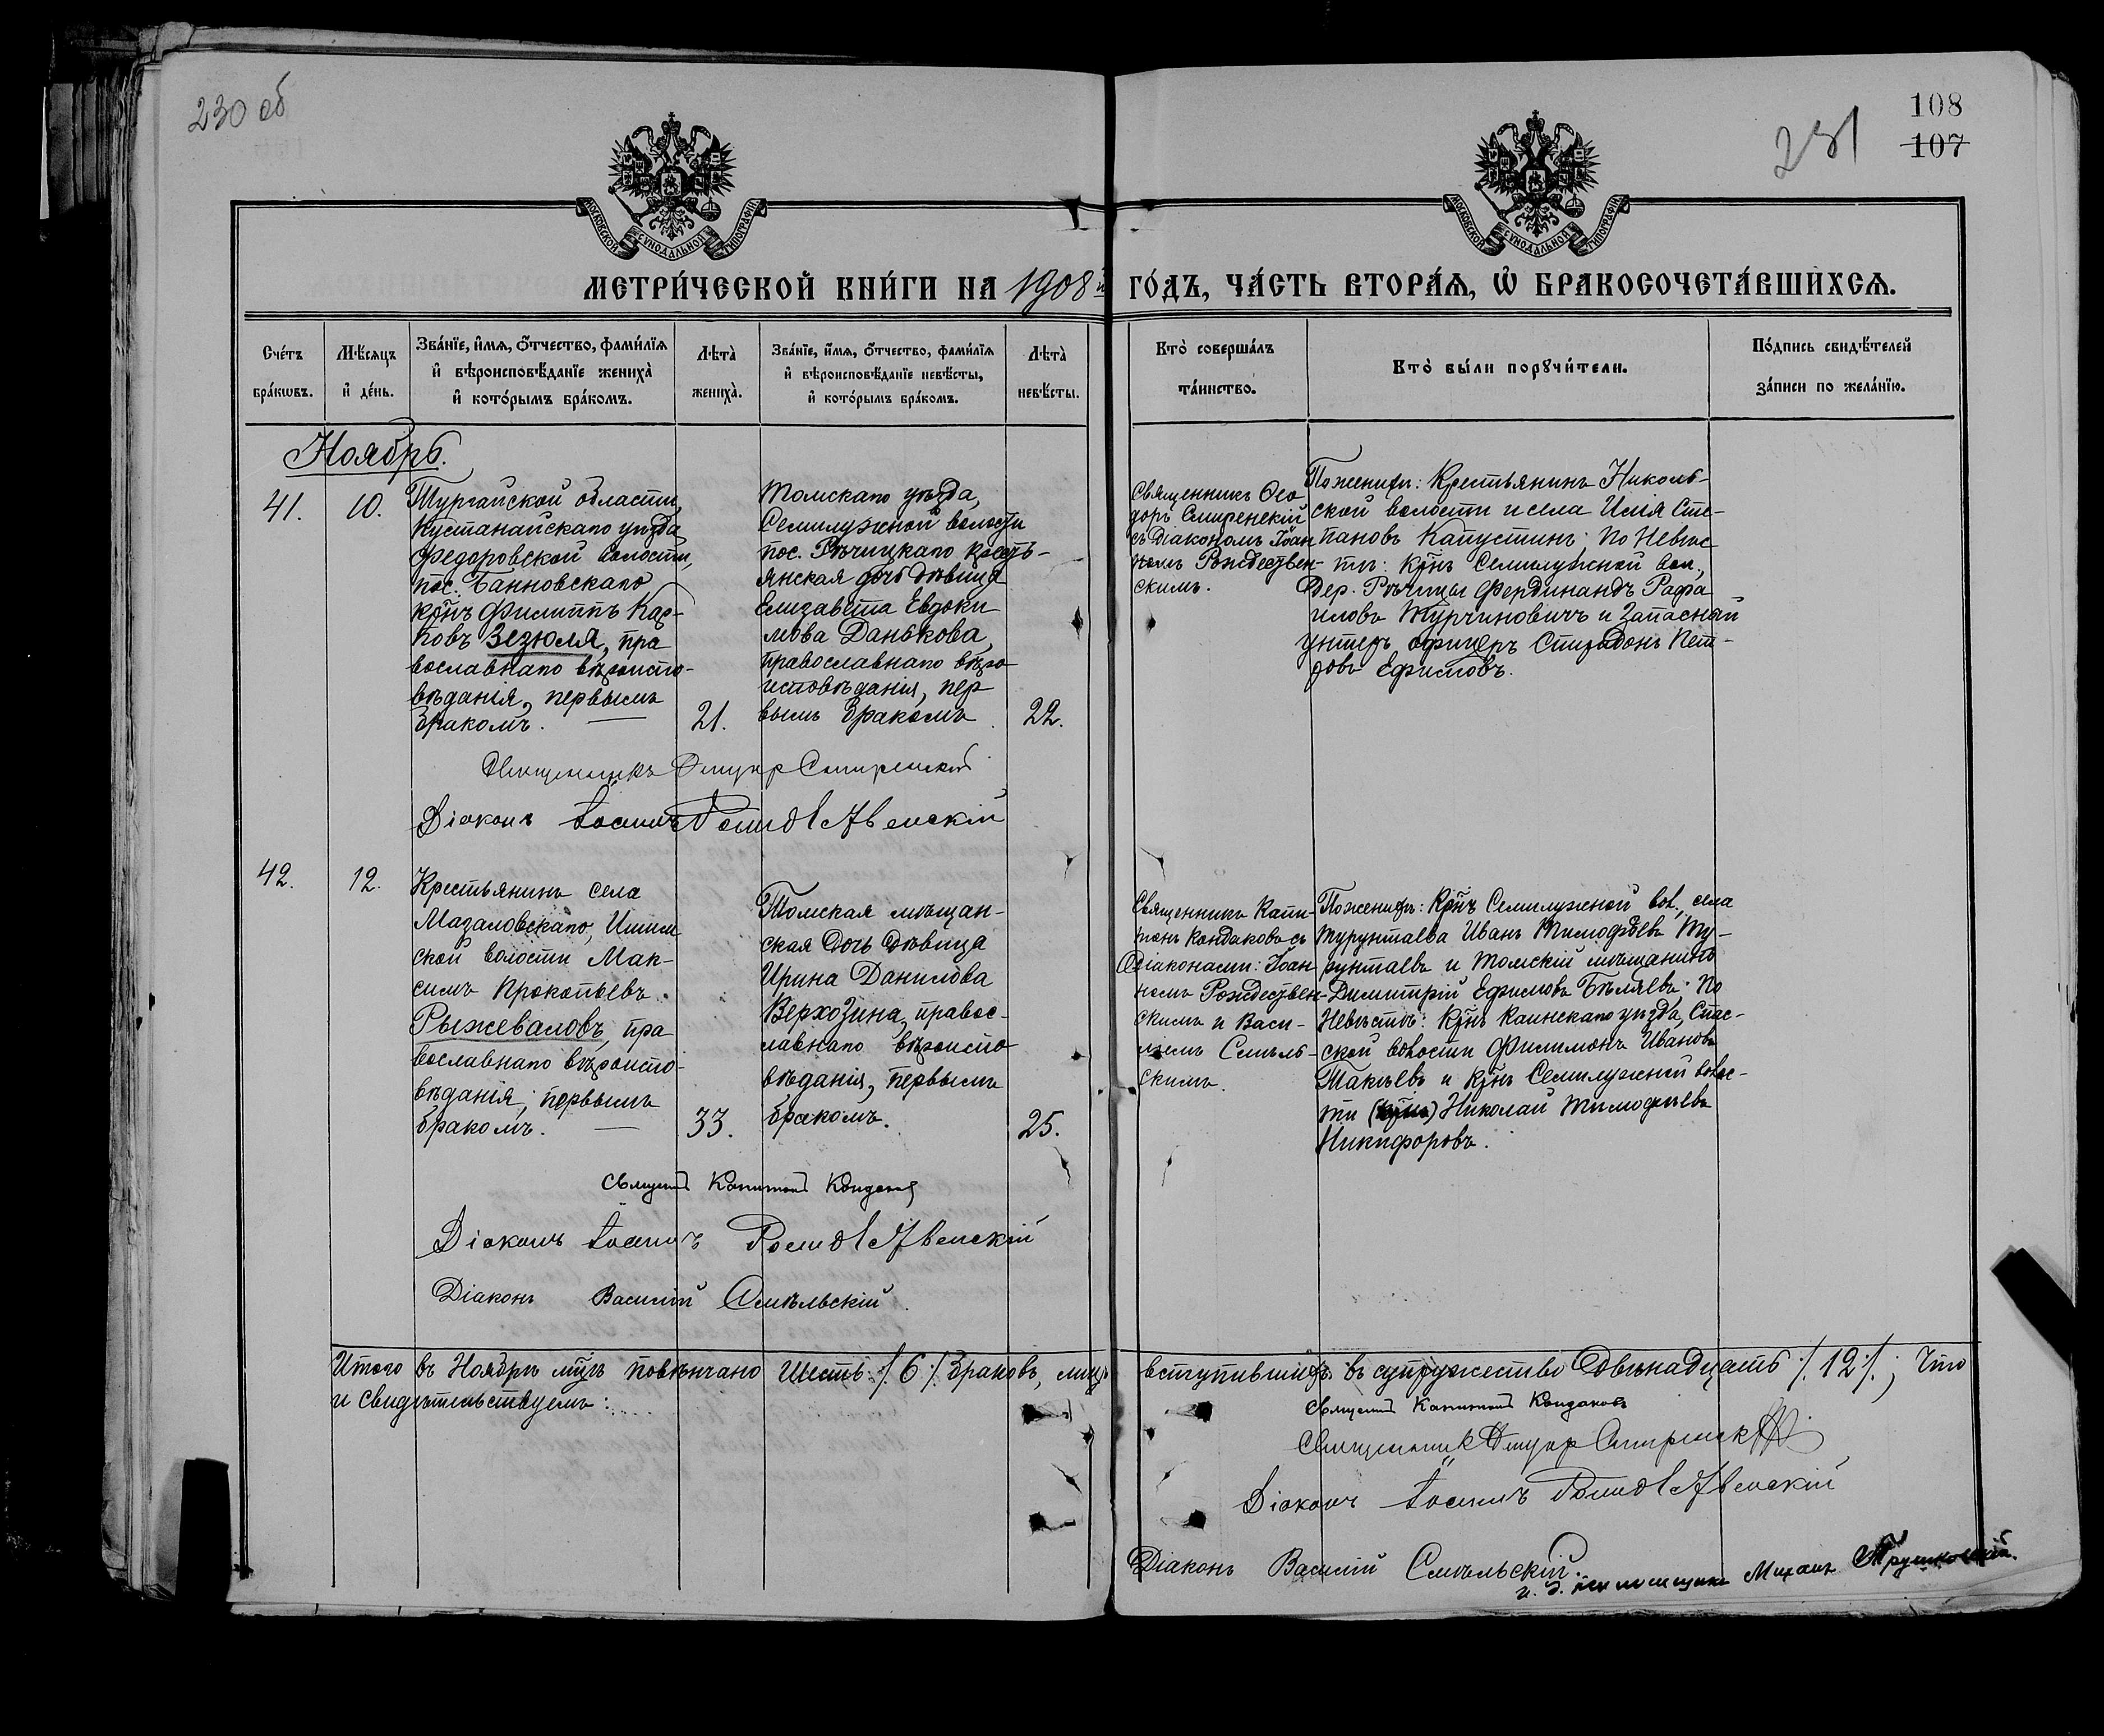 230 об
231
108
107
МОСКОВСКОЙ СѴНОДАЛЬНОЙ ТИПОГРАФІИ
МОСКОВСКОЙ СѴНОДАЛЬНОЙ ТИПОГРАФІИ
МЕТРИ́ЧЕСКОЙ КНИ́ГИ НА 1908й ГО́ДЪ, ЧА́СТЬ ВТОРА́Ѧ, Ѽ БРАКОСОЧЕТА́ВШИХСѦ.
Сче́тъ
бра́кѡвъ.
Мѣ́сяцъ
и҆ де́нь.
Зва́нїе, и҆́мѧ, ѻ҆́тчество, фами́лїѧ
и҆ вѣроисповѣ́данїе жениха̀
и҆ кото́рымъ бра́комъ.
Лѣта̀
жениха̀.
Зва́нїе, и҆́мѧ, ѻ҆́тчество, фами́лїѧ
и҆ вѣроисповѣ́данїе невѣ́сты,
и҆ кото́рымъ бра́комъ.
Лѣта̀
невѣ́сты.
Кто̀ соверша́лъ
та́инство.
Кто̀ бы́ли порꙋчи́тели.
По́дпись свидѣ́телей
за́писи по жела́нїю.
Ноябрь.
41.
10.
Тургайской области,
Кустанайскаго уѣзда
Федоровской волости,
пос. Банновскаго
кр̃нъ Филиппъ Кар-
повъ Зезюля, пра
вославнаго вѣроиспо-
вѣданія, первымъ
бракомъ.
21.
Томскаго уѣзда,
Семилужной волости
пос. Рѣчицкаго кресть-
янская дочь дѣвица
Елизавета Евдоки
мова Данькова,
православнаго вѣро
исповѣданія, пер
вымъ бракомъ
22.
Священникъ Ѳео
доръ Смиренскій
съ Діакономъ Іоан
номъ Рождествен-
скимъ.
По женихѣ: Крестьянинъ Николь-
ской волости и села Илія Сте-
пановъ Капустинъ; По Невѣс
тѣ: кр̃нъ Семилужной вол.,
Дер. Рѣчицы Фердинандъ Рафа
иловъ Турчиновичъ и Запасный
унтеръ офицеръ Спиридонъ Пет-
ровъ Ефимовъ.
Священникъ Ѳеодоръ Смиренскій
Діаконъ Іоаннъ Рождественскій
42.
12.
Крестьянинъ села
Мазаловскаго, Ишим
ской волости Мак-
симъ Прокопьевъ
Рыжеваловъ, пра
вославнаго вѣроиспо-
вѣданія; первымъ
бракомъ.
33.
Томская мѣщан-
ская Дочь дѣвица
Ирина Данилова
Верхозина, правос-
лавнаго вѣроиспо
вѣданія, первымъ
бракомъ.
25.
Священникъ Капи-
тонъ Кондаковъ съ
Діаконами: Іоан
номъ Рождествен-
скимъ и Васи-
ліемъ Смѣль-
скимъ.
По женихѣ: Кр̃нъ Семилужной вол, села
Турунтаева Иванъ Тимофѣевъ Ту-
рунтаевъ и Томскій мѣщанинъ
Димитрій Ефимовъ Бѣляевъ; По
Невѣстѣ: Кр̃нъ Каинскаго уѣзда, Спас-
ской волости Филимонъ Ивановъ
Такѣевъ и кр̃нъ Семилужной волос-
ти Николай Тимофѣевъ
Никифоровъ.
Священникъ Капитонъ Кондаковъ
Діаконъ Іоаннъ Рождественскій
Діаконъ Василій Смѣльскій.
Итого въ Ноябрѣ мц̃ѣ повѣнчано Шесть ./. 6 ./. браковъ, лицъ вступившихъ въ супружество Двѣнадцать ./. 12 ./.; Что
и свидѣтельствуемъ:
Священникъ Капитонъ Кондаковъ
Священникъ Ѳеодоръ Смиренскій
Діаконъ Іоаннъ Рождественскій
Діаконъ Василій Смѣльскій.
и. д. псаломщика Михаилъ